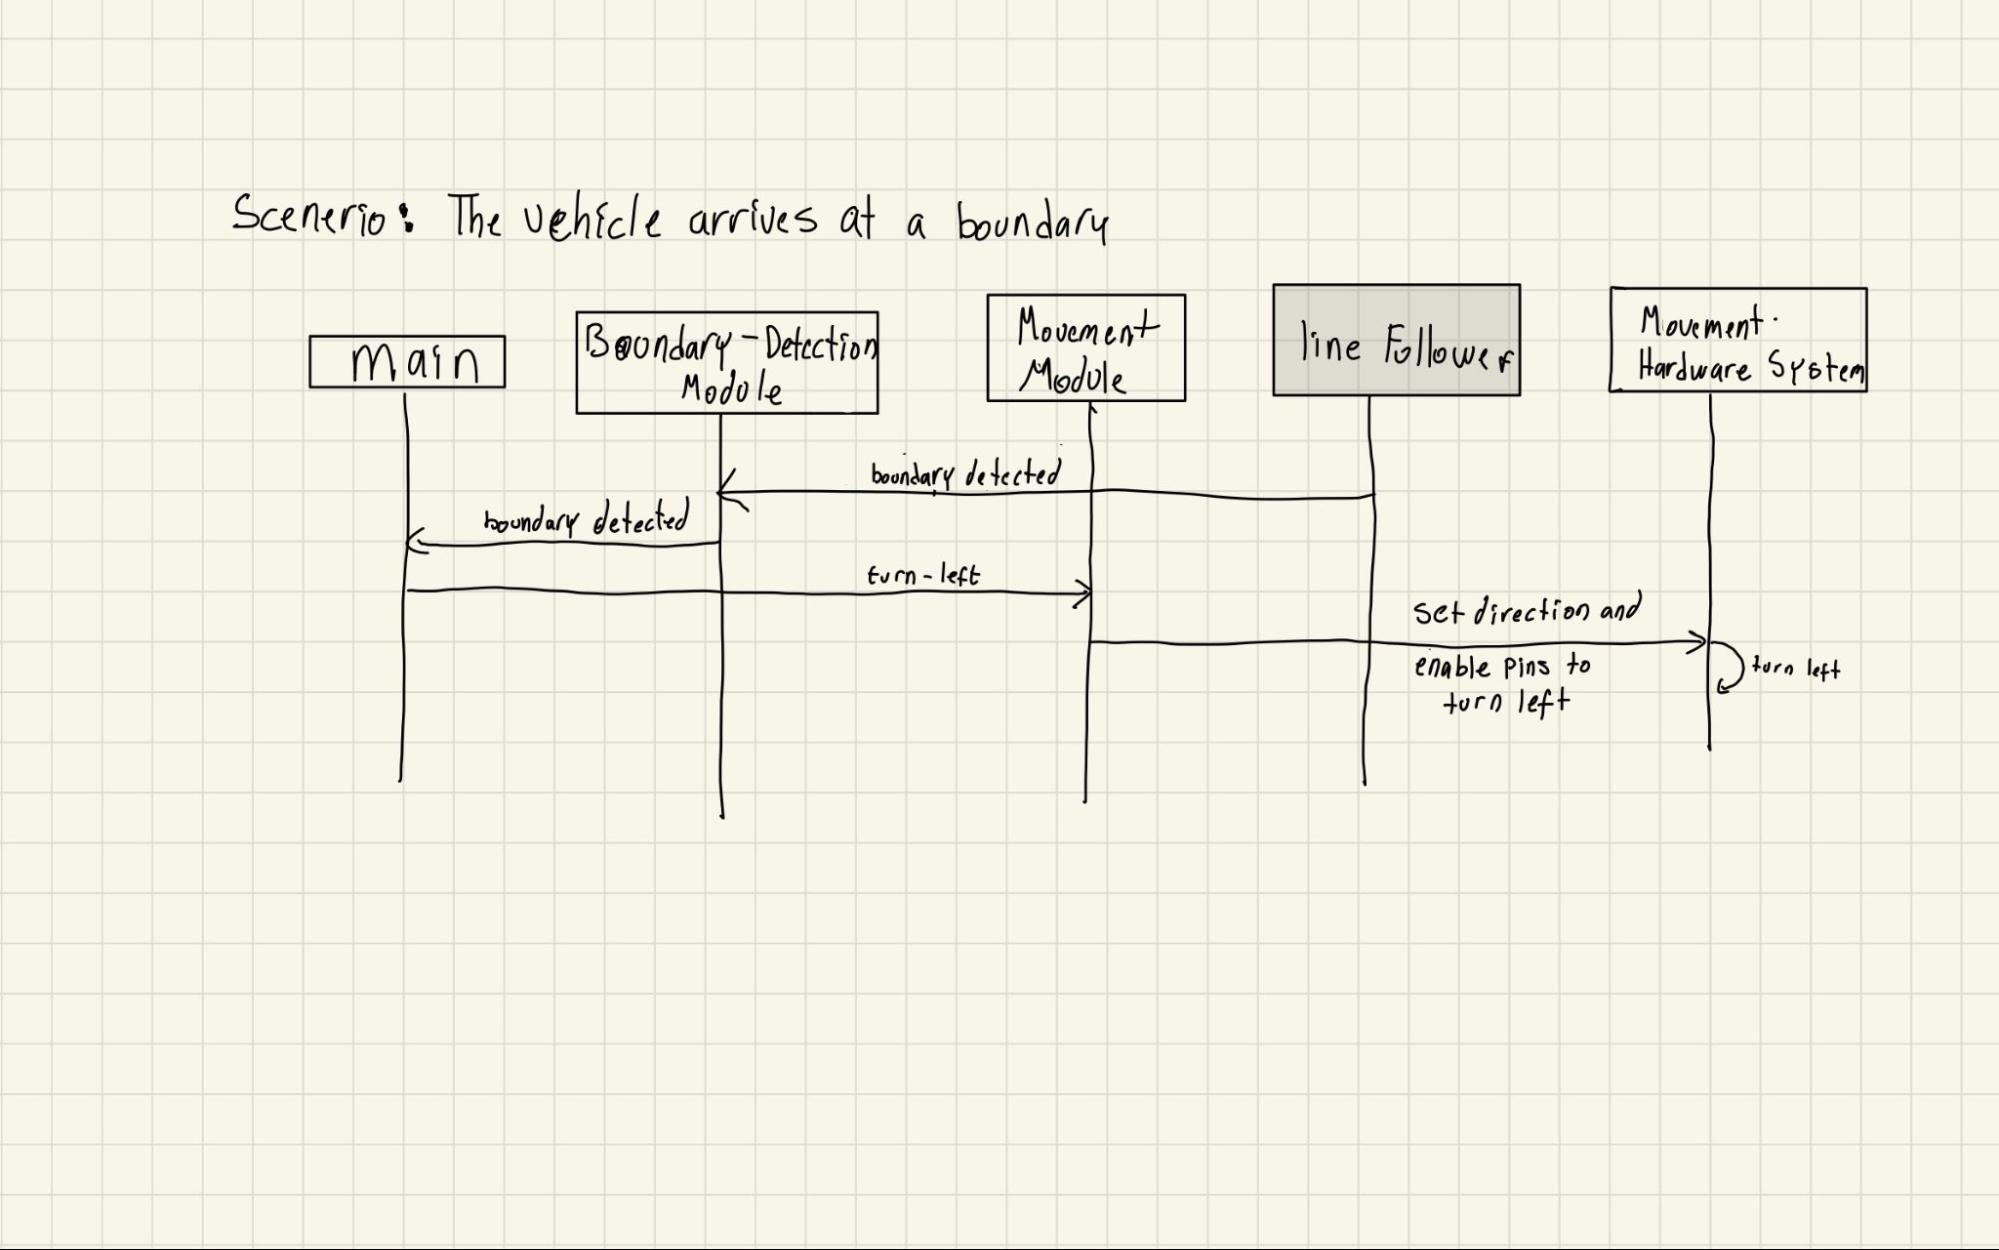 Scenerio: The vehicle arrives at a boundary
Main
Boundary-Detection
Module
Movement
Module
line Follower
Movement
Hardware System
boundary detected
boundary detected
turn-left
set direction and
enable pins to
turn left
turn left